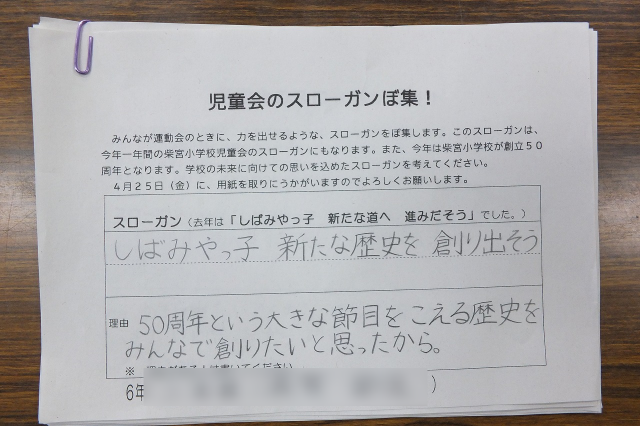 児童会のスローガンぼ集！
みんなが運動会のときに、力を出せるような、スローガンをぼ集します。このスローガンは、
今年一年間の柴宮小学校児童会のスローガンにもなります。また、今年は柴宮小学校が創立５０
周年となります。学校の未来に向けての思いを込めたスローガンを考えてください。
４月２５日（金）に、用紙を取りにうかがいますのでよろしくお願いします。
スローガン（去年は「しばみやっ子　新たな道へ　進みだそう」でした。）
しばみやっ子　新たな歴史を　創り出そう
理由　50周年という大きな節目をこえる歴史を
みんなで創りたいと思ったから。
※
6年　）